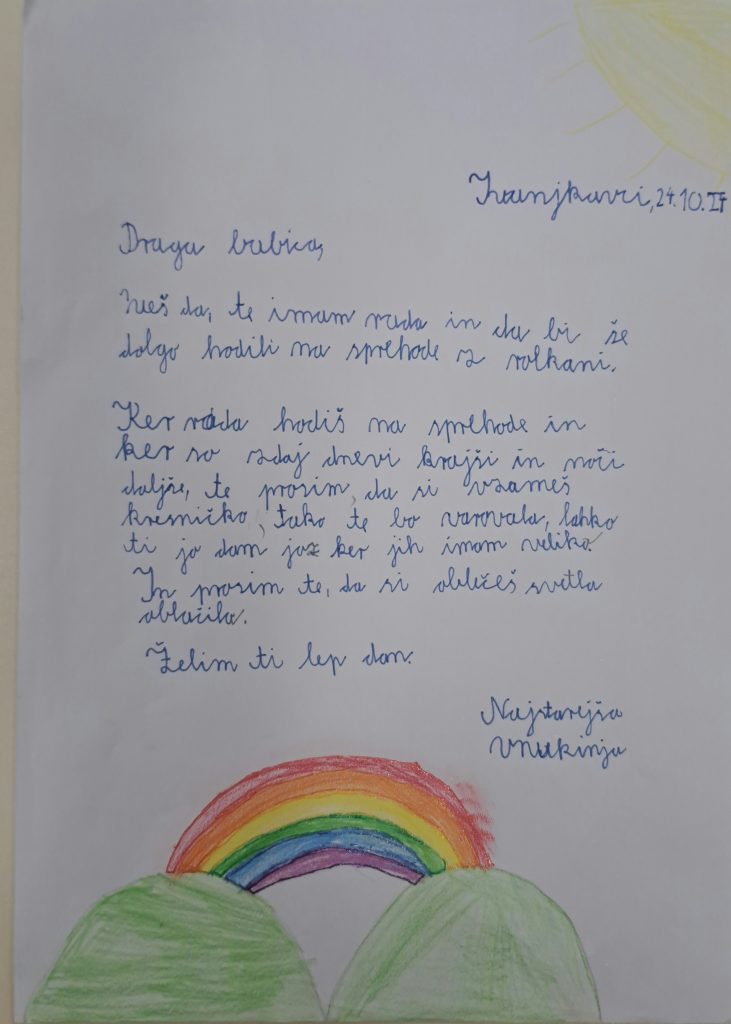 Ivanjkovci, 24.10.
Draga babica,
Veš da, te imam rada in da bi še
dolgo hodili na sprehode z rolkami.
Ker rada hodiš na sprehode in
ker so zdaj dnevi krajši in noči
daljše, te prosim, da si vzameš
kresničko, tako te bo varovala, lahko
ti jo dam jaz ker jih imam veliko.
In prosim te, da si oblečeš svetla
oblačila.
Želim ti lep dan.
Najstarejša
vnukinja